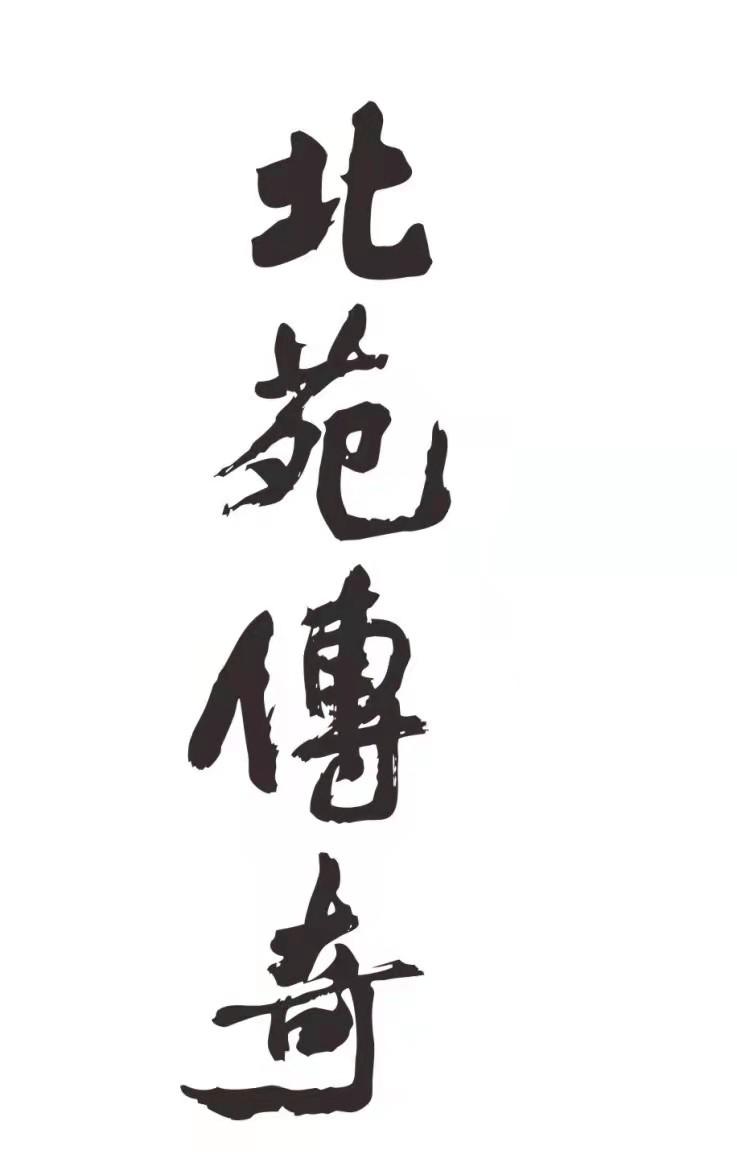 北苑傳奇